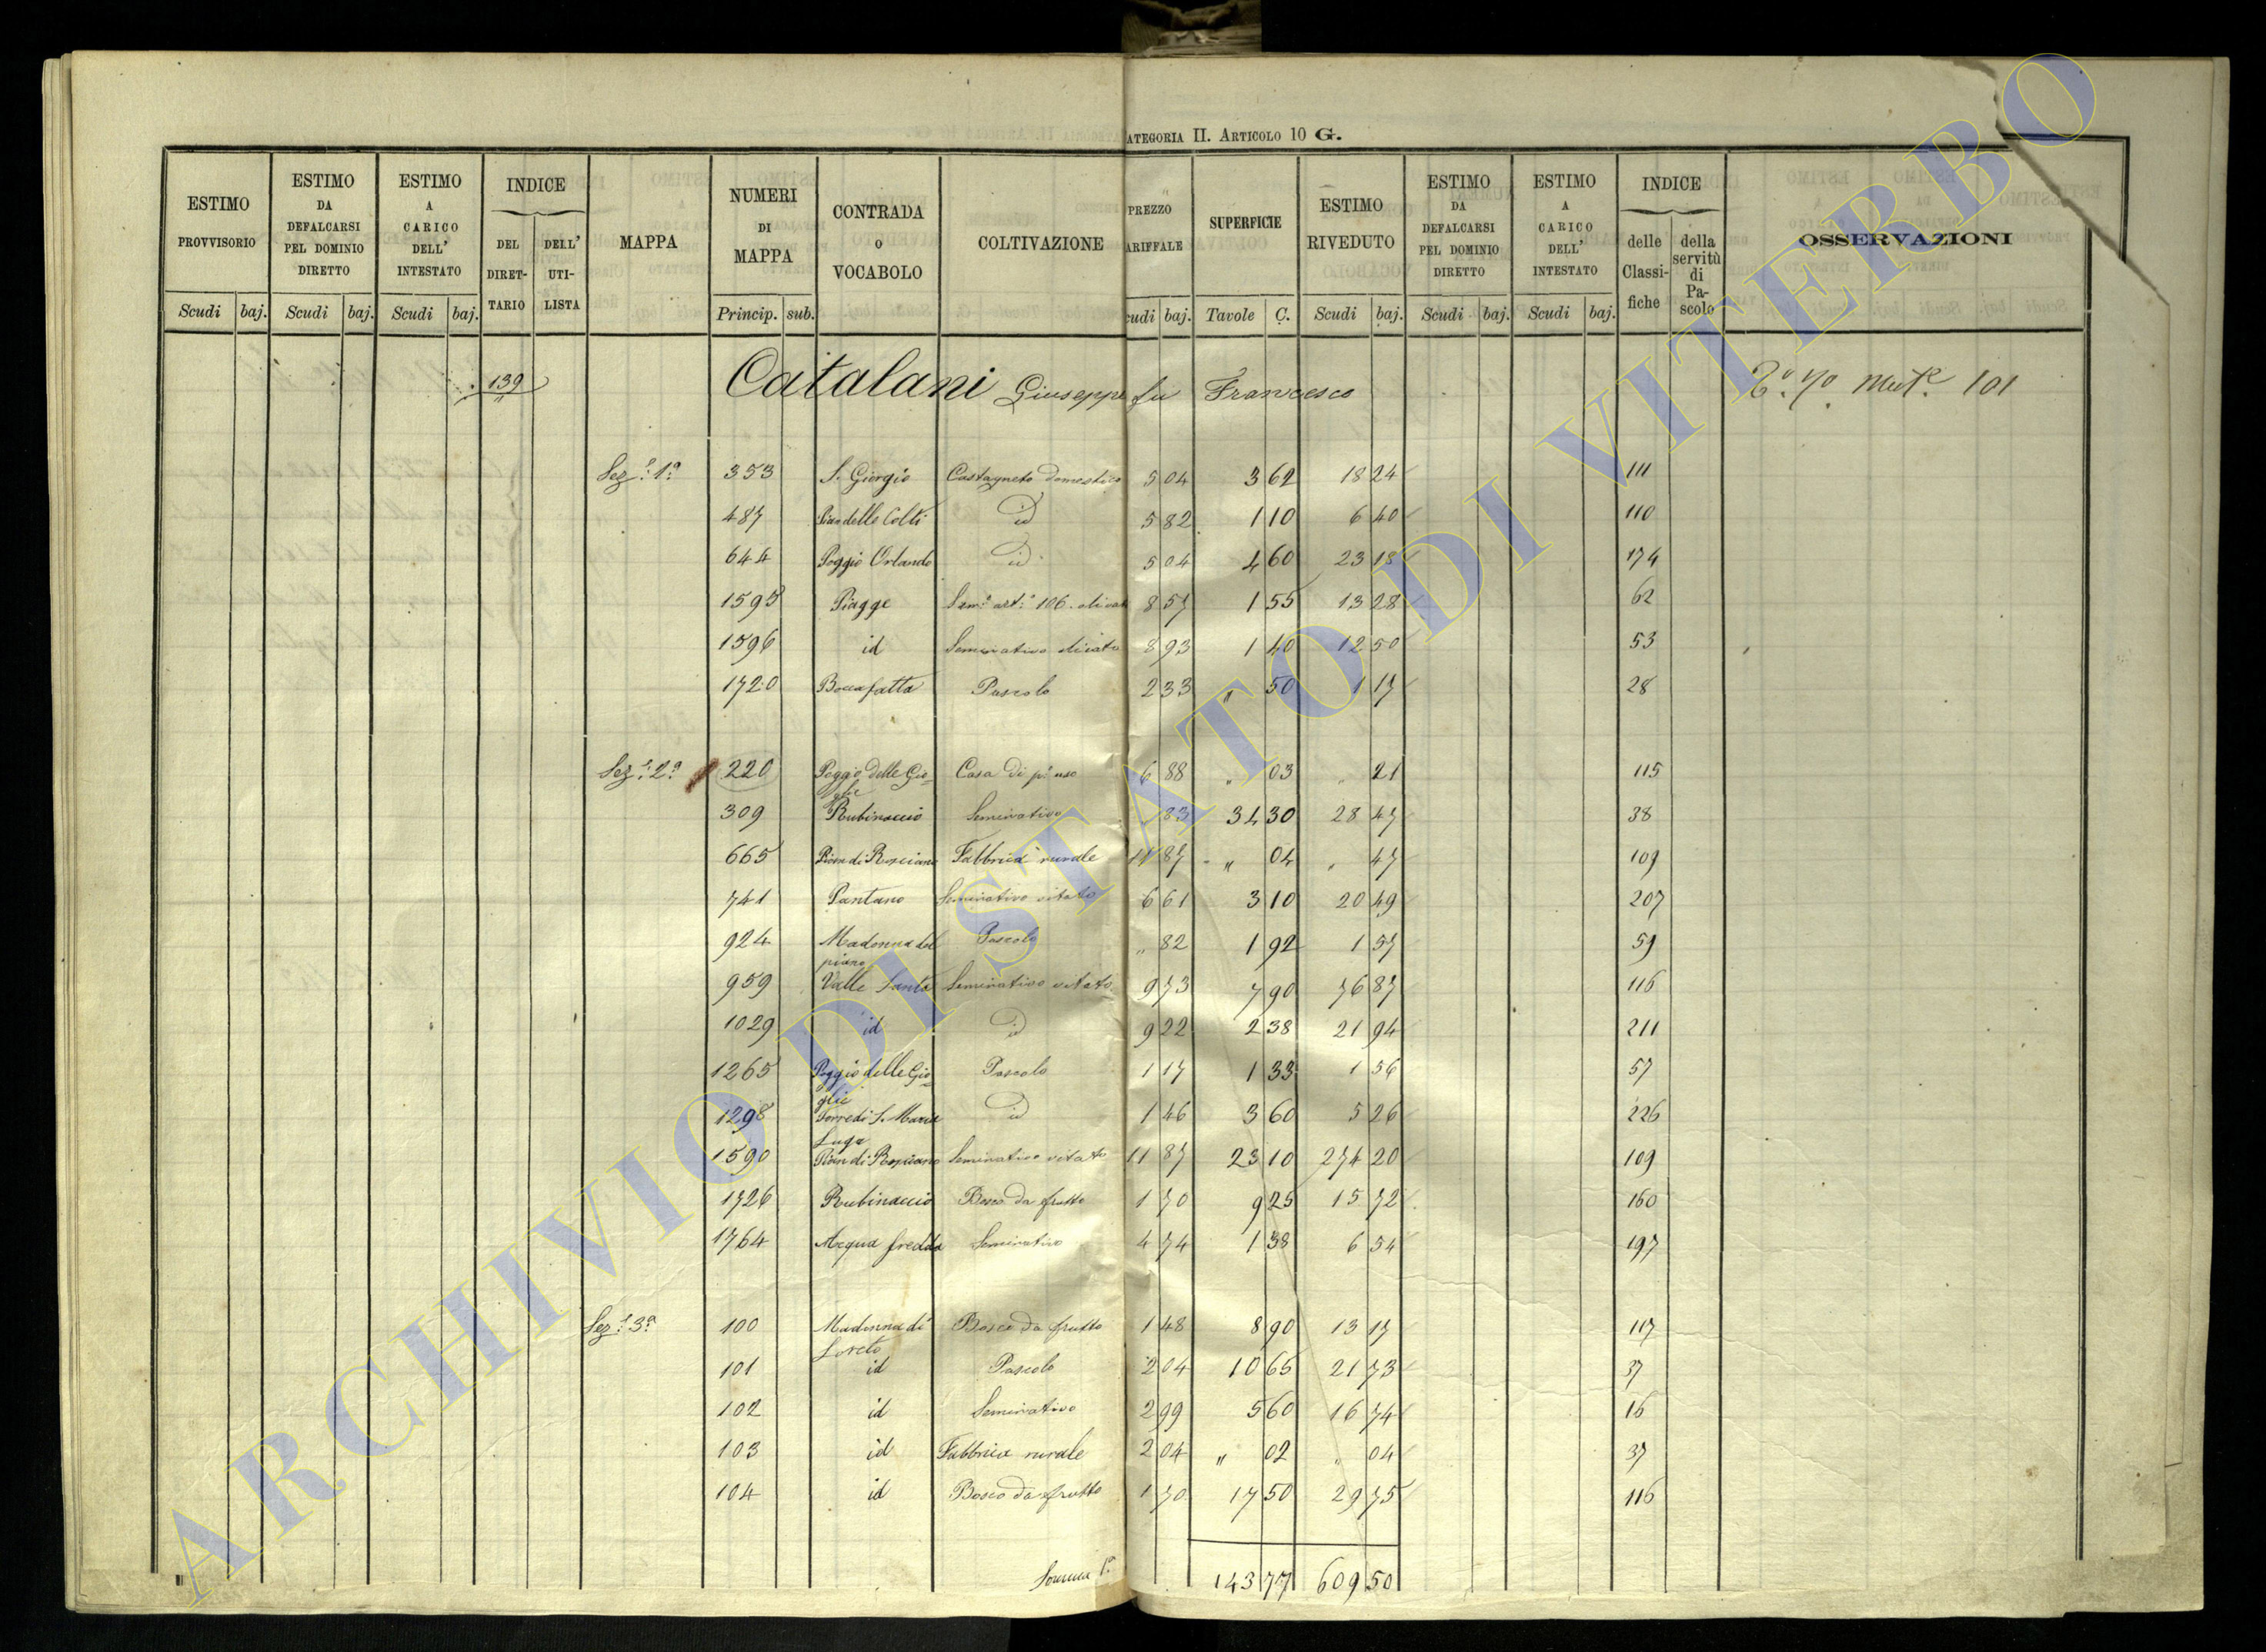 ATEGORIA II. ARTICOLO 10 G.
ESTIMO PROVVISORIO
ESTIMO DA DEFALCARSI PEL DOMINIO DIRETTO
ESTIMO A CARICO DELL' INTESTATO
INDICE
DEL DIRETTARIO
DELL' UTILISTA
MAPPA
NUMERI DI MAPPA
CONTRADA O VOCABOLO
COLTIVAZIONE
PREZZO ARIFFALE
SUPERFICIE
ESTIMO RIVEDUTO
ESTIMO DA DEFALCARSI PEL DOMINIO DIRETTO
ESTIMO A CARICO DELL' INTESTATO
INDICE
delle Classifiche
della servitù di Pascolo
OSSERVAZIONI
Scudi baj. Scudi baj. Scudi baj. Princip. sub. cudi baj. Tavole C. Scudi baj. Scudi baj. Scudi baj.
139 Catalani Giuseppe fu Francesco 101
Sez.e 1.a 353 S. Giorgio Castagneto domestico 5 04 3 62 18 24 111
487 Pian delle Colti id 5 82 1 10 6 40 110
644 Poggio Orlando id 5 04 4 60 23 18 174
1595 Piagge Sem.o art.o 106. olivat 8 57 1 55 13 28 62
1596 id Seminativo olivato 8 93 1 40 12 50 53
1720 Boccafatta Pascolo 2 33 " 50 1 17 28
Sez.e 2.a 220 Poggio delle Gio-
glie Casa di p.o uso 6 88 " 03 " 21 115
309 Rubinaccio Seminativo " 83 34 30 28 47 38
665 Pian di Rosciano Fabbrica rurale 11 87 " 04 " 47 109
741 Pantano Seminativo vitato 6 61 3 10 20 49 207
924 Madonna del
piano Pascolo " 82 1 92 1 57 59
959 Valle Santa Seminativo vitato 9 73 7 90 76 87 116
1029 id id 9 22 2 38 21 94 211
1265 Poggio delle Gio-
glie Pascolo 1 17 1 33 1 56 57
1298 Torre di S. Maria
Luga id 1 46 3 60 5 26 226
1590 Pian di Rosciano Seminativo vitato 11 87 23 10 274 20 109
1726 Rubinaccio Bosco da frutto 1 70 9 25 15 72 160
1764 Acqua fredda Seminativo 4 74 1 38 6 54 197
Sez.e 3.a 100 Madonna di
Loreto Bosco da frutto 1 48 8 90 13 17 117
101 id Pascolo 2 04 10 65 21 73 37
102 id Seminativo 2 99 5 60 16 74 16
103 id Fabbrica rurale 2 04 " 02 " 04 37
104 id Bosco da frutto 1 70 17 50 29 75 116
Somma 143 77 609 50
ARCHIVIO DI STATO DI VITERBO